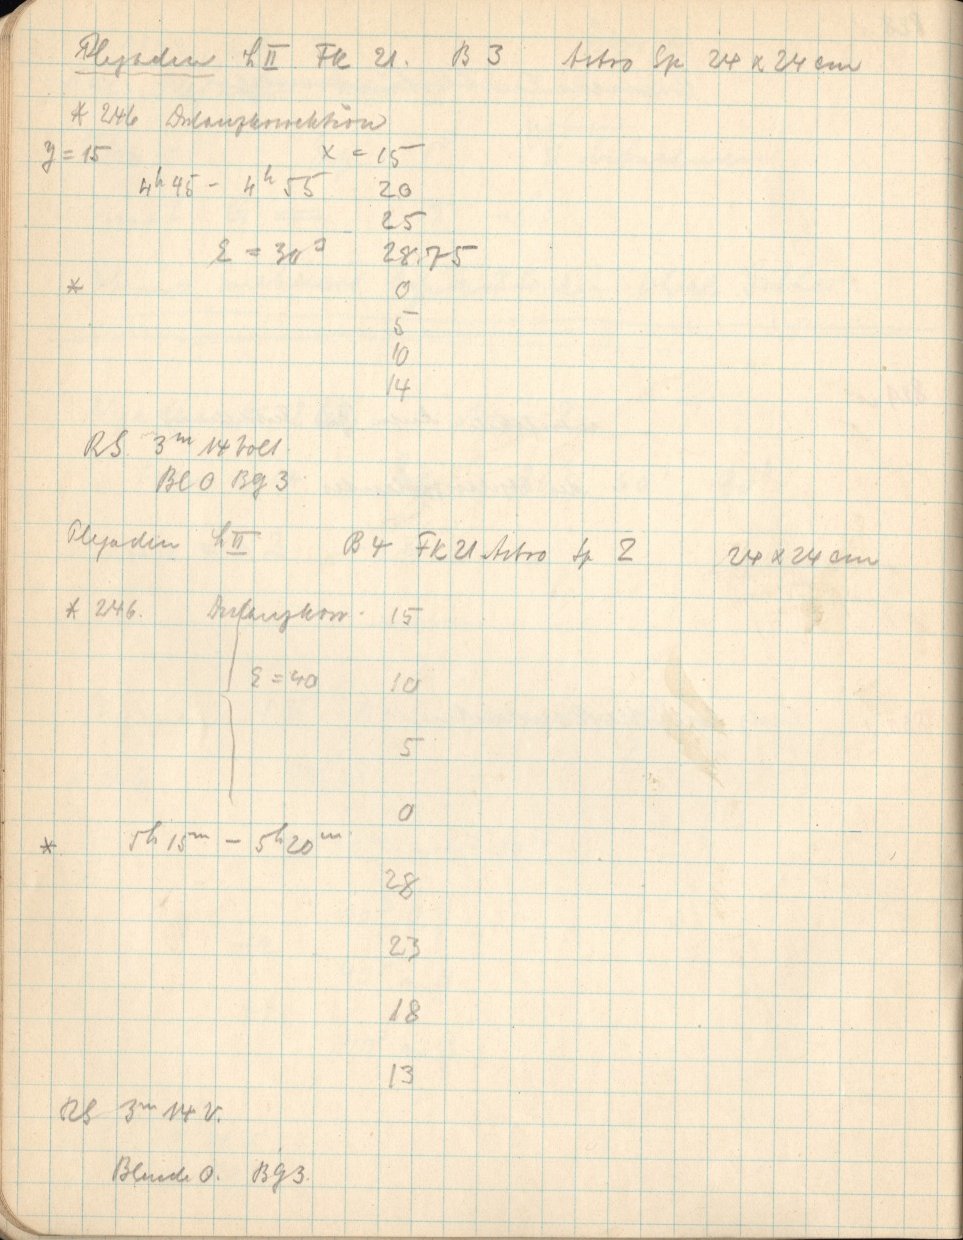 Plejaden h II Fk 21. B 3 Astro Sp 24 x 24 cm
* 246 Distanzkorrektion
y = 15 x = 15
4h 45 - 4h 55 20
25
ε = 30s 28.75
* 0
5
10
14
RS 3m 14 Volt
Bl 0 Bg 3
Plejaden h II B 4 Fk 21 Astro Sp Z 24 x 24 cm
* 246. Distanzkorr. 15
ε = 40 10
5
0
* 5h 15m - 5h 20m
28
23
18
13
RS 3m 14 V.
Blende 0. Bg 3.